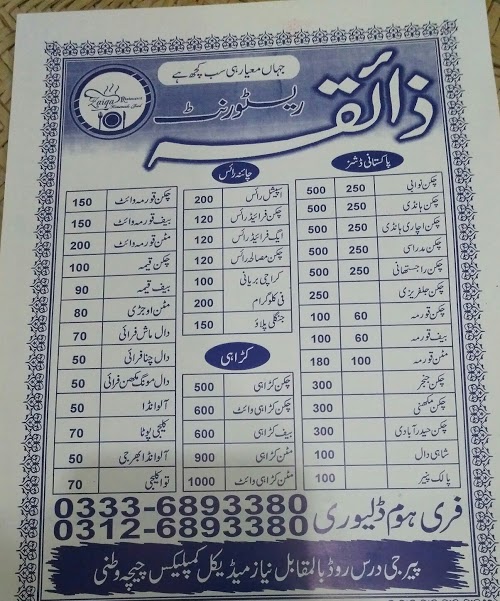 جہاں معیار ہی سب کچھ ہے
ذائقہ
ریسٹورنٹ
Zaiqa
Restaurant
پاکستانی ڈشز
چکن نوابی 250 500
چکن ہانڈی 250 500
چکن اچاری ہانڈی 250 500
چکن مدراسی 250 500
چکن راجستھانی 250 500
چکن جلفریزی 250
چکن قورمہ 60 100
بیف قورمہ 60 100
مٹن قورمہ 100 180
چکن جنجر 300
چکن مکھنی 300
چکن حیدرآبادی 300
شاہی دال 100
پالک پنیر 100
چائنہ رائس
اسپیشل رائس 200
چکن فرائیڈ رائس 120
ایگ فرائیڈ رائس 120
چکن مصالحہ رائس 120
کراچی بریانی 100
فی کلو گرام 200
جنگلی پلاؤ 150
کڑاہی
چکن کڑاہی 500
چکن کڑاہی وائٹ 600
بیف کڑاہی 600
مٹن کڑاہی 900
مٹن کڑاہی وائٹ 1000
چکن قورمہ وائٹ 150
بیف قورمہ وائٹ 150
مٹن قورمہ وائٹ 200
چکن قیمہ 100
بیف قیمہ 90
مٹن اوجڑی 80
دال ماش فرائی 70
دال چنا فرائی 50
دال مونگ مکھن فرائی 50
آلو انڈا 50
کلیجی پوٹا 70
آلو انڈا بھرجی 50
توا کلیجی 70
فری ہوم ڈلیوری
0333-6893380
0312-6893380
پیر جی درس روڈ بالمقابل نیاز میڈیکل کمپلیکس چیچہ وطنی